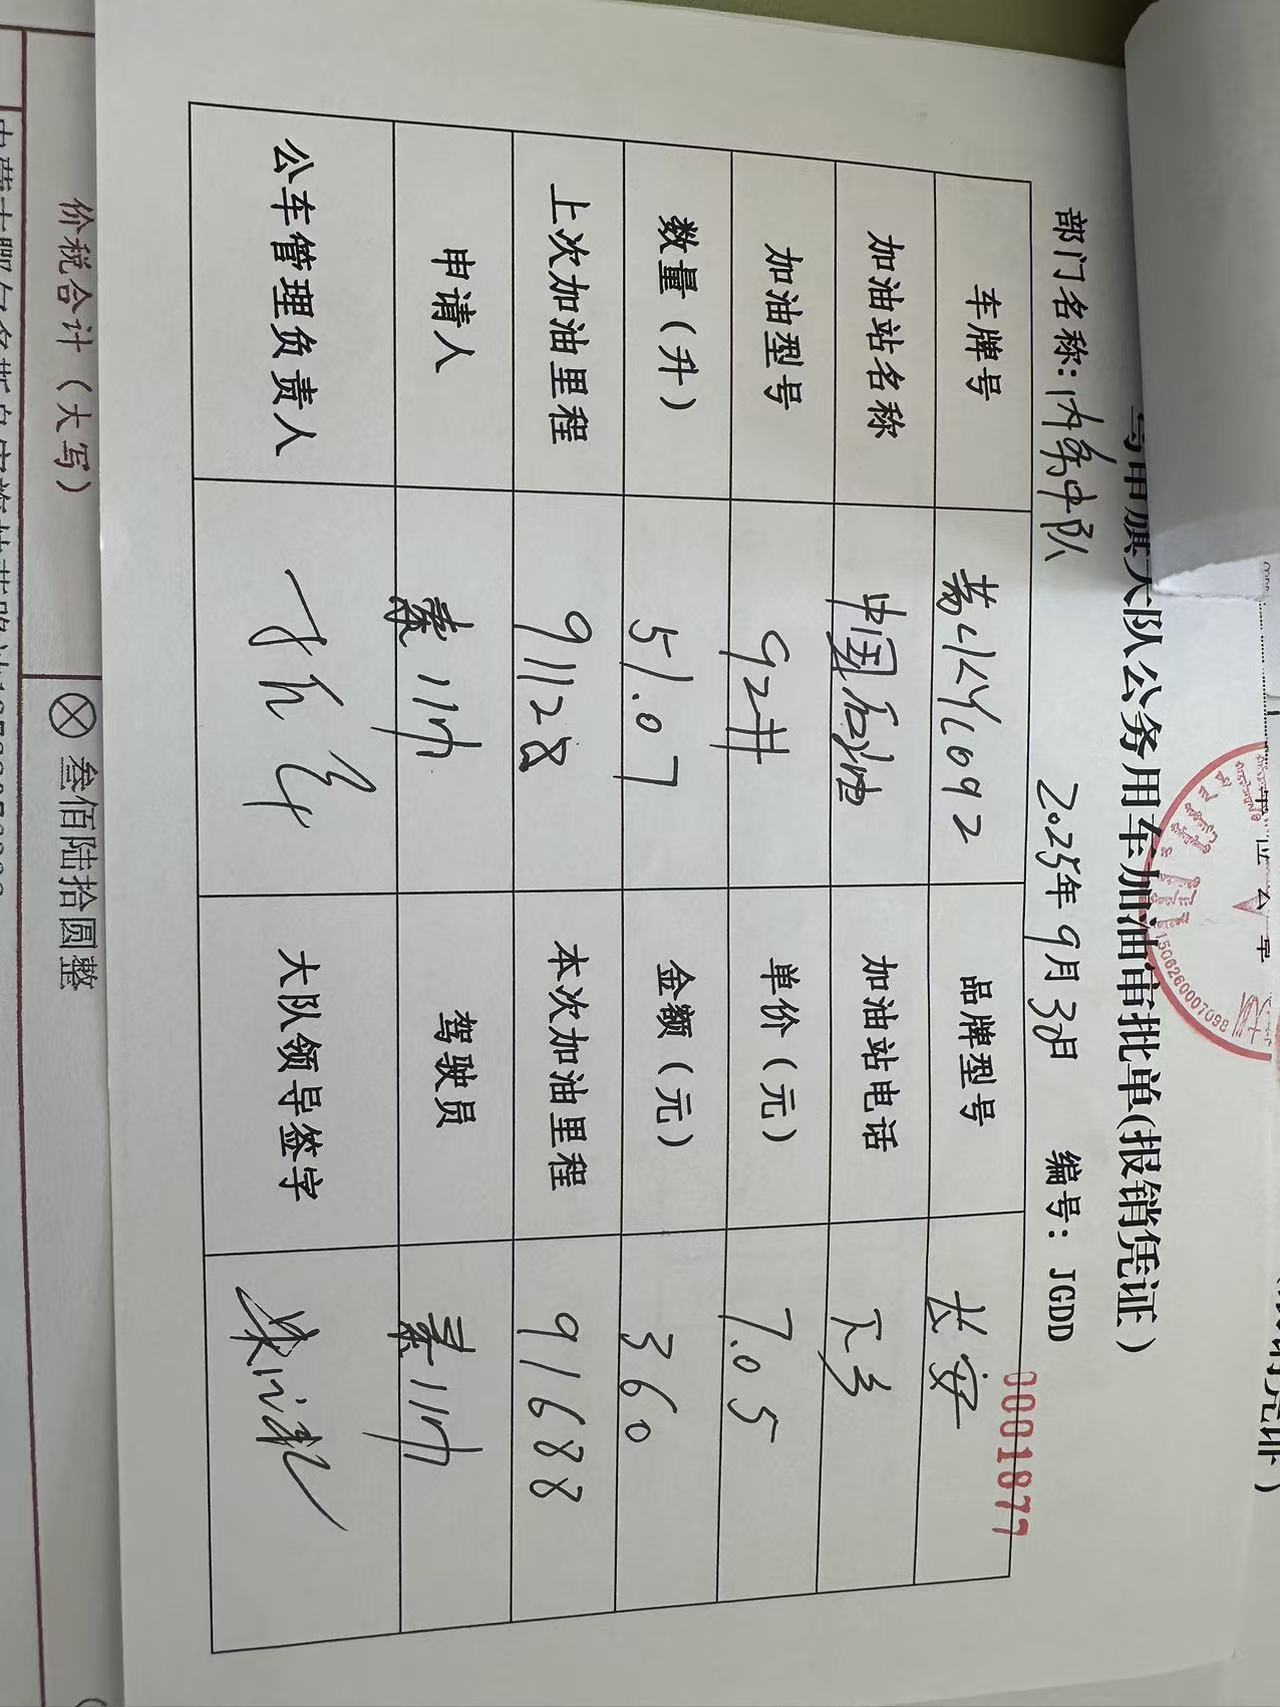 旗大队公务用车加油审批单(报销凭证)
部门名称: 内勤中队 2025年9月3日 编号: JGDD 0001877
车牌号 品牌型号 长安
加油站名称 中国石油 加油站电话
加油型号 92# 单价(元) 7.05
数量(升) 51.07 金额(元) 360
上次加油里程 91128 本次加油里程 91688
申请人 秦川 驾驶员 秦川
公车管理负责人 大队领导签字
价税合计(大写) ⊗ 叁佰陆拾圆整
1506260007098